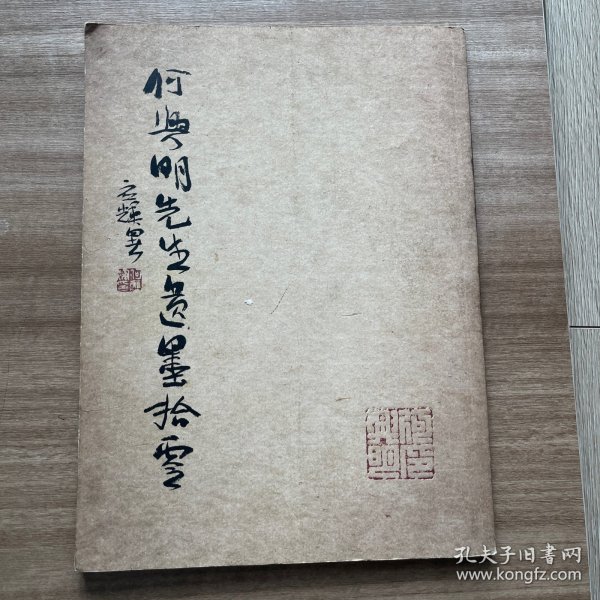 何興明先生遺墨拾零
孔夫子旧书网
www.kongfz.com